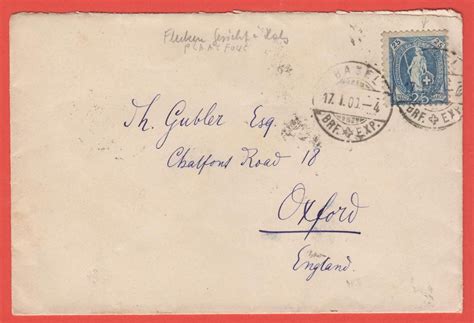 Flecken Gesicht + Hals
PLAATFOUT
BASEL
17. I. 00. – 4
BRF. EXP.
25 25
25
BRF. EXP.
Th. Gubler Esq.
Chalfons Road 18
Oxford
England.